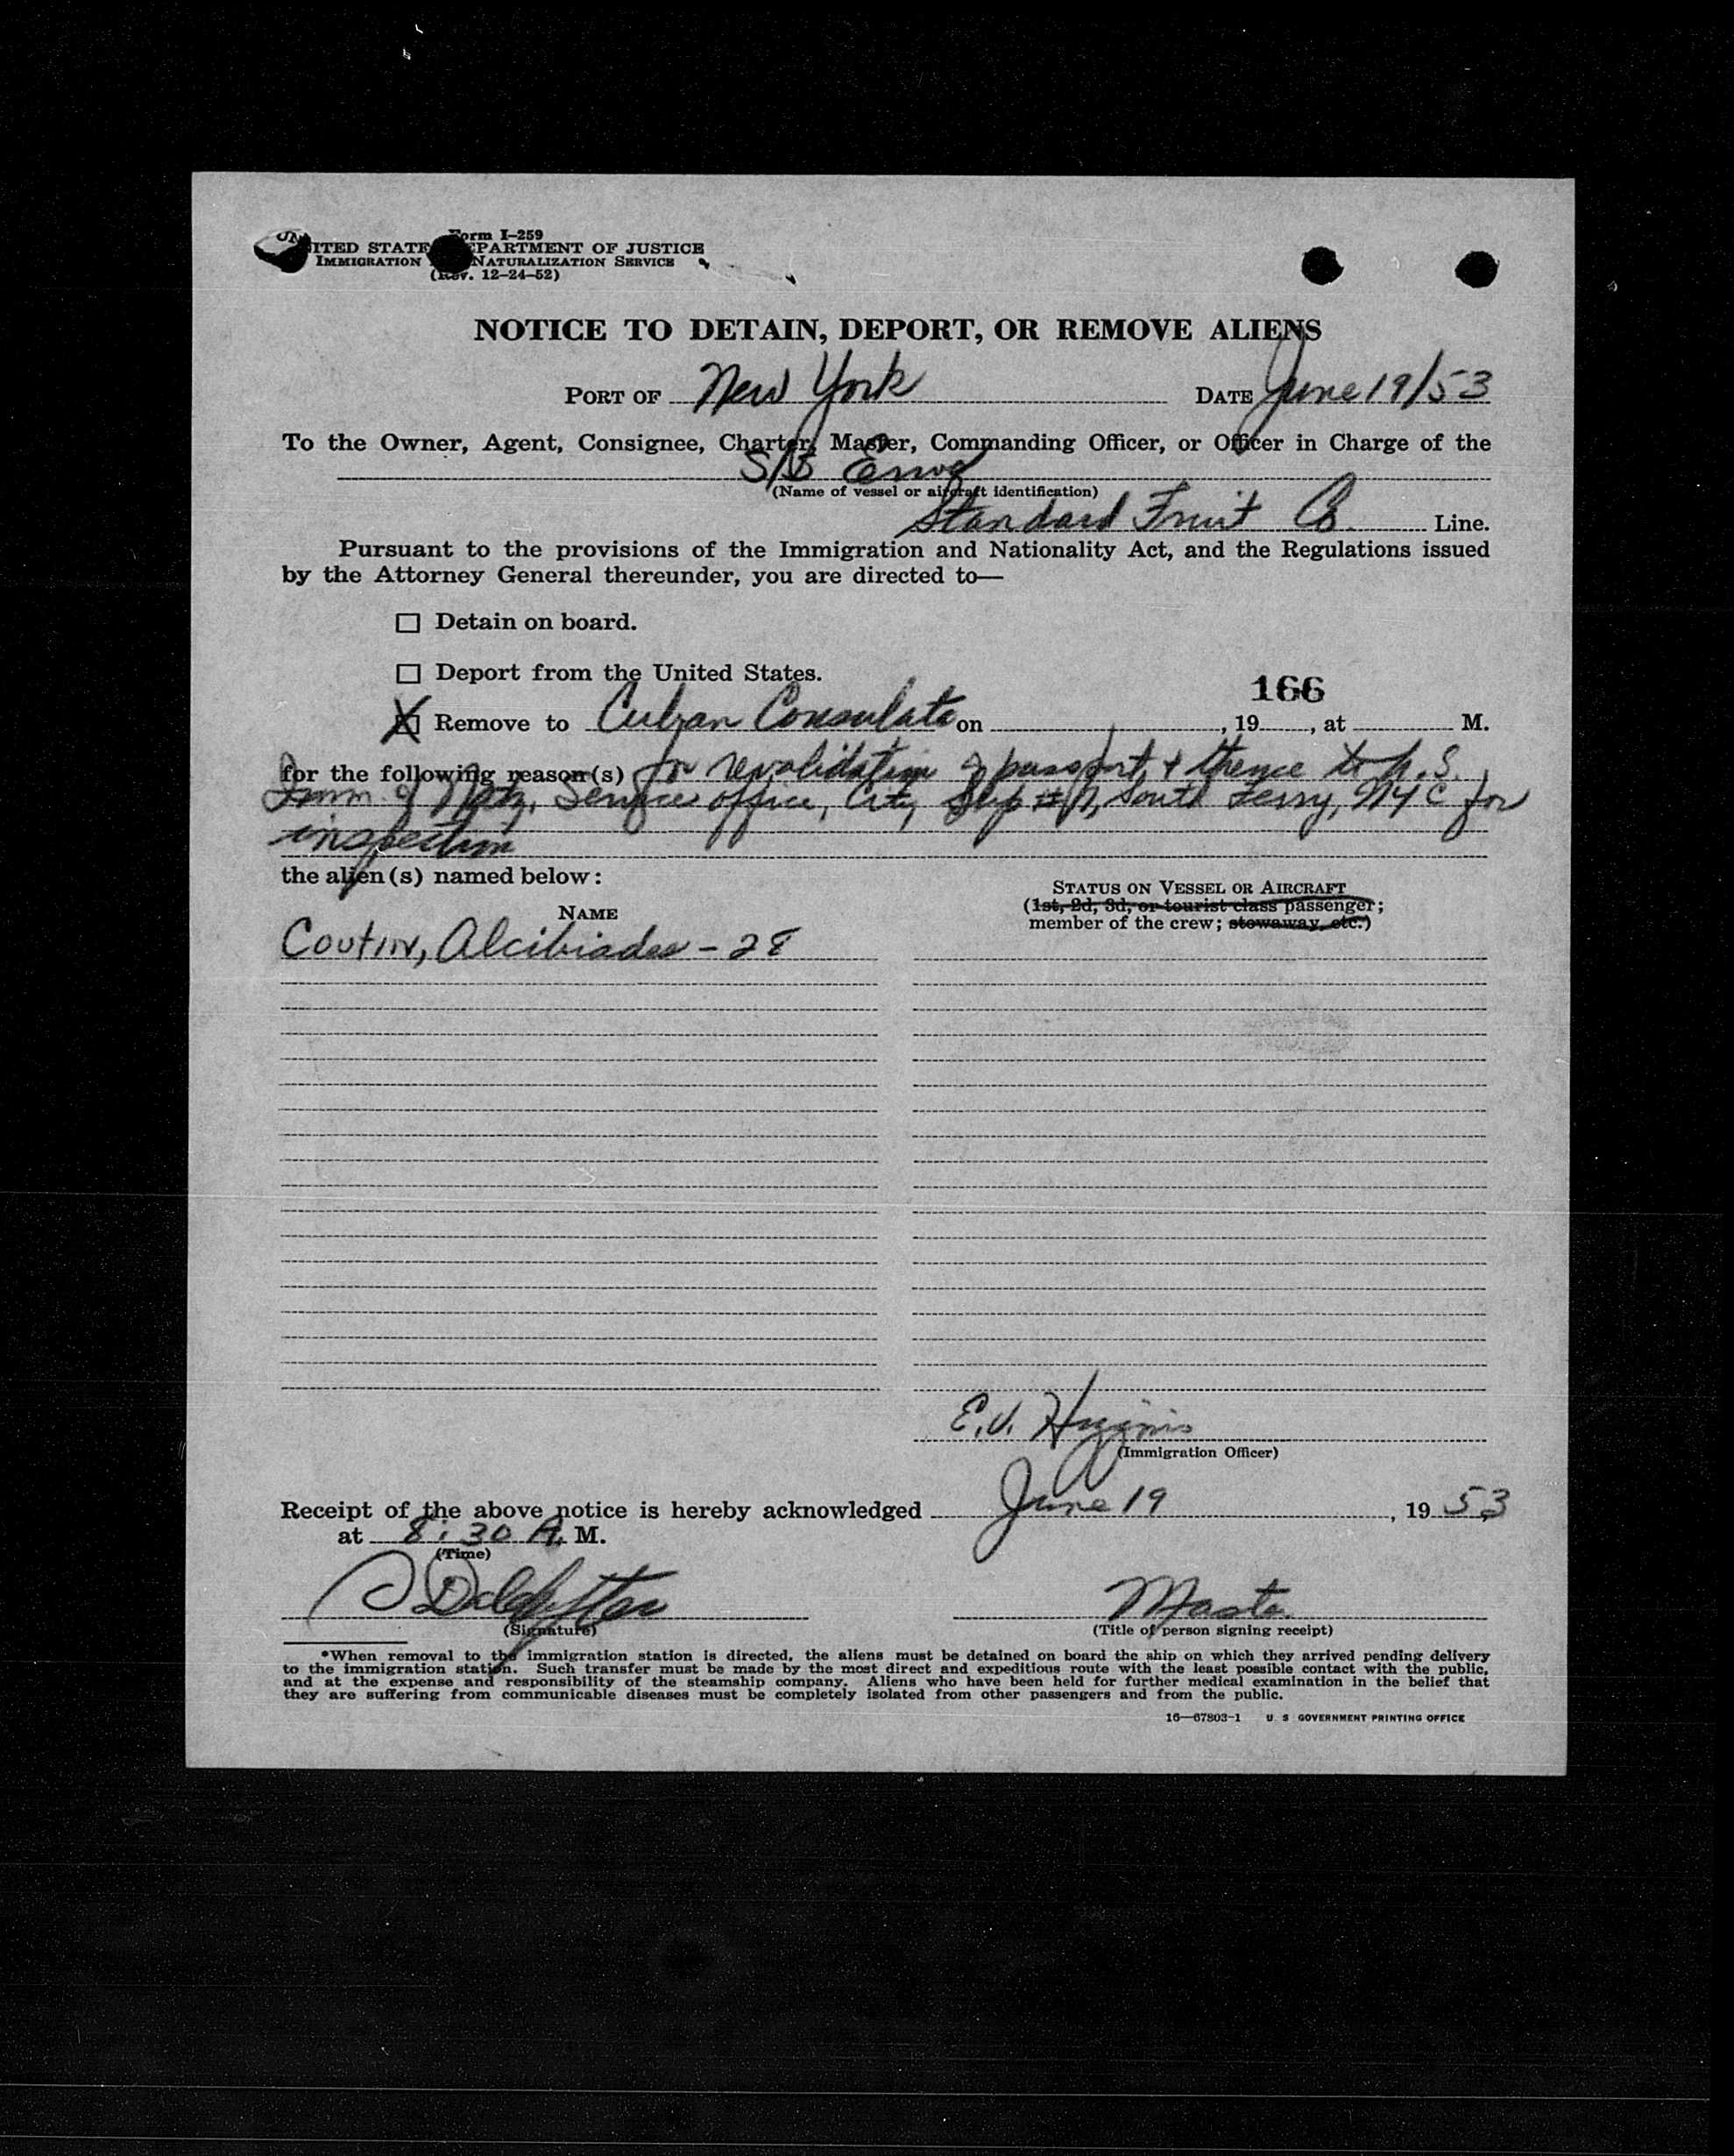 Form I-259
UNITED STATES DEPARTMENT OF JUSTICE
IMMIGRATION NATURALIZATION SERVICE
(Rev. 12-24-52)
NOTICE TO DETAIN, DEPORT, OR REMOVE ALIENS
PORT OF New York DATE June 19/53
To the Owner, Agent, Consignee, Charter, Master, Commanding Officer, or Officer in Charge of the
S/S
(Name of vessel or aircraft identification)
Standard Fruit Co. Line.
Pursuant to the provisions of the Immigration and Nationality Act, and the Regulations issued
by the Attorney General thereunder, you are directed to—
Detain on board.
Deport from the United States.
166
X Remove to Cuban Consulate on , 19 , at M.
for the following reason(s) for revalidation of passport & thence to U.S.
Imm. & Natz. Service office, City Slip South Ferry, NYC for
inspection
the alien(s) named below:
STATUS ON VESSEL OR AIRCRAFT
(1st, 2d, 3d, or tourist class passenger;
member of the crew; stowaway, etc.)
NAME
Coutin, Alcibiades - 28
E.J.
(Immigration Officer)
Receipt of the above notice is hereby acknowledged June 19, 1953
at 8:30 A. M.
(Time)
Master
(Signature)
(Title of person signing receipt)
*When removal to the immigration station is directed, the aliens must be detained on board the ship on which they arrived pending delivery
to the immigration station. Such transfer must be made by the most direct and expeditious route with the least possible contact with the public,
and at the expense and responsibility of the steamship company. Aliens who have been held for further medical examination in the belief that
they are suffering from communicable diseases must be completely isolated from other passengers and from the public.
16—67803-1 U. S. GOVERNMENT PRINTING OFFICE